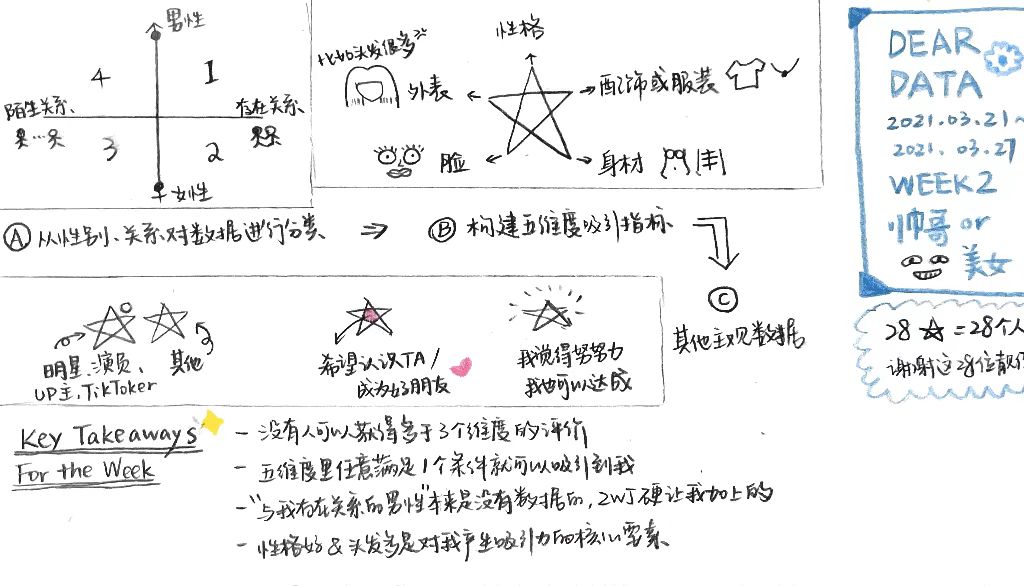 男性
4
1
陌生关系
存在关系
3
2
女性
比如头发很多
外表
性格
配饰或服装
脸
身材
DEAR
DATA
2021.03.21~
2021.03.27
WEEK2
帅哥 or
美女
Ⓐ 从性别、关系对数据进行分类
Ⓑ 构建五维度吸引指标
Ⓒ
其他主观数据
明星、演员、
UP主、TikToker
其他
希望认识TA/
成为好朋友
我觉得努努力
我也可以达成
28 ☆ = 28个人
谢谢这28位靓
Key Takeaways
For the Week
- 没有人可以获得多于3个维度的评价
- 五维度里任意满足1个条件就可以吸引到我
- "与我存在关系的男性"本来是没有数据的，ZWJ硬让我加上的
- 性格好 & 头发多是对我产生吸引力的核心要素